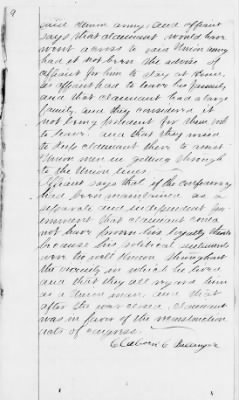 9
said Union army, and affiant
says that claimant would have
went across to said Union army
had it not been the advice of
affiant for him to stay at home,
as affiant had to leave his family
and that claimant had a large
family, and they considered it
not being prudent for them both
to leave. and that they used
to keep claimant there to assist
Union men in getting through
to the Union lines
Affiant says that if the confederacy
had been maintained as a
separate and independent
government that claimant could
not have proven his loyalty thereto
because his political sentiments
were too well known throughout
the vicinity in which he lived
and that they all regard him
as a Union man, and that
after the war closed, claimant
was in favor of the reconstruction
acts of congress.